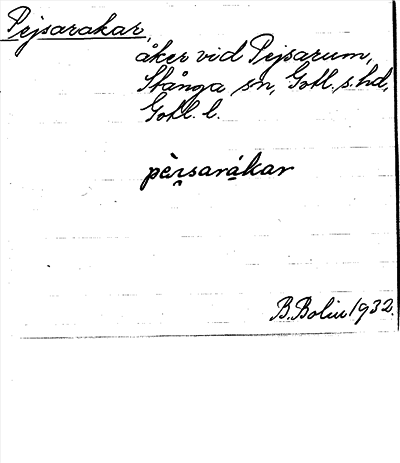 Pejsarakar,
åker vid Pejsarum,
Stånga sn, Gotl. s. hd,
Gotl. l.
pèi̯sarákar
B. Bolin 1932.